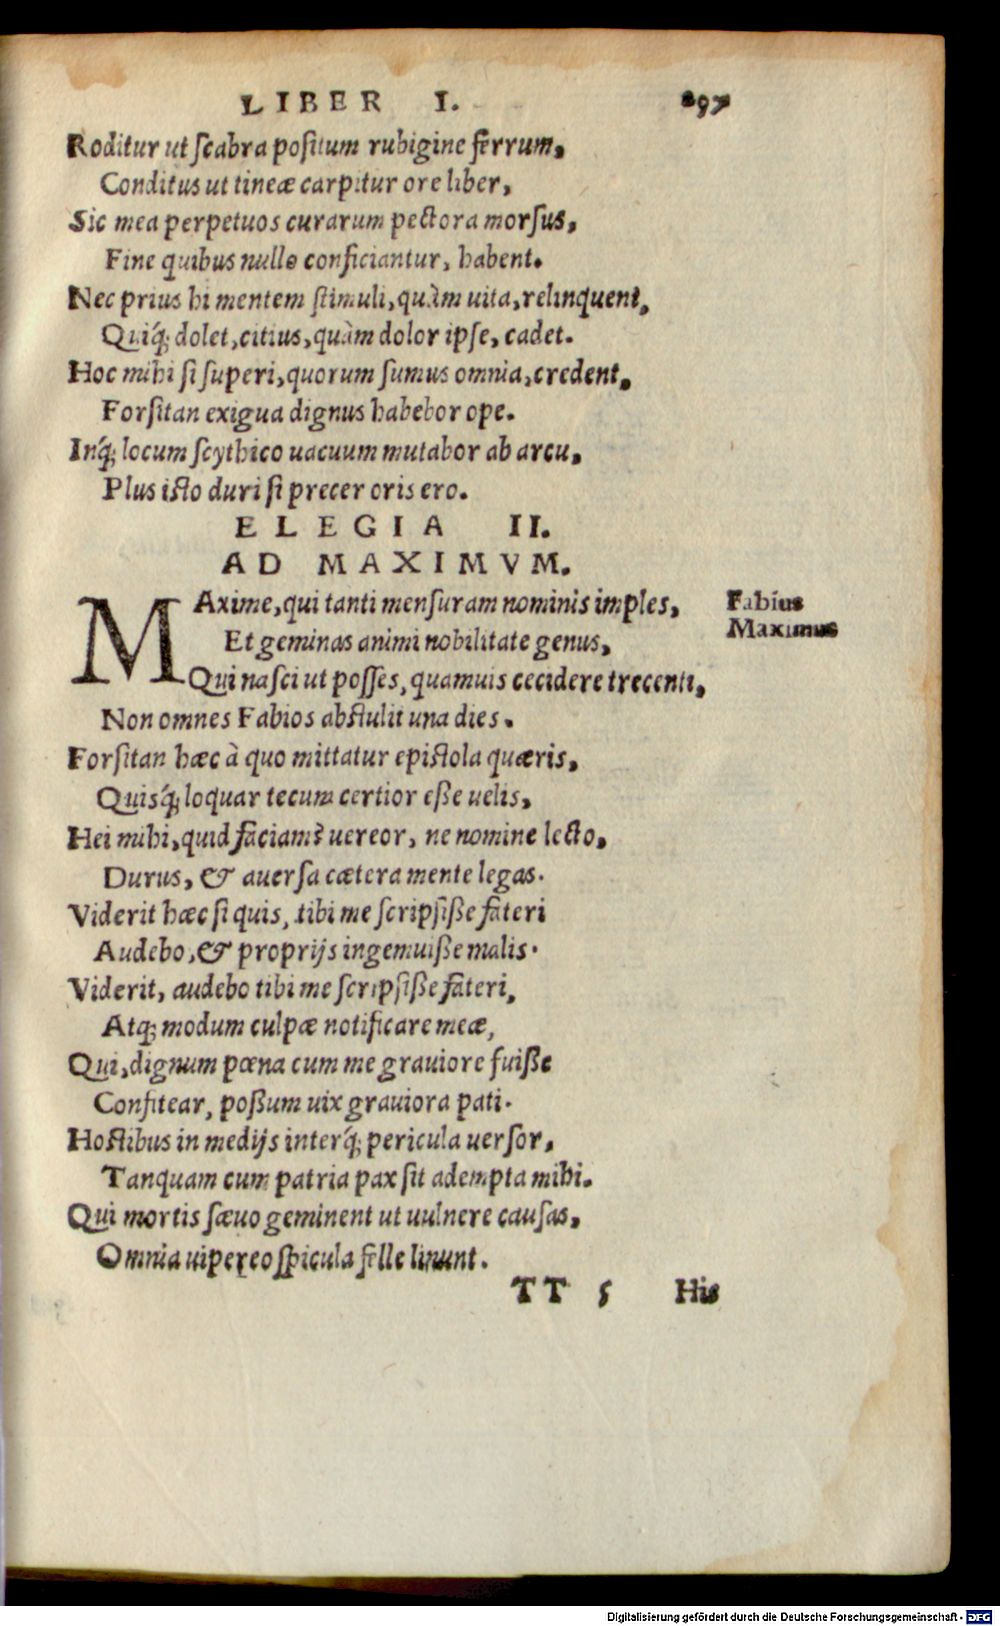 LIBER I. 297
Roditur ut ſcabra poſitum rubigine ferrum,
Conditus ut tineæ carpitur ore liber,
Sic mea perpetuos curarum pectora morſus,
Fine quibus nullo conficiantur, habent.
Nec prius hi mentem ſtimuli, quàm uita, relinquent,
Quiq́; dolet, citius, quàm dolor ipſe, cadet.
Hoc mihi ſi ſuperi, quorum ſumus omnia, credent,
Forſitan exigua dignus habebor ope.
Inq́; locum ſcythico uacuum mutabor ab arcu,
Plus iſto duri ſi precer oris ero.
ELEGIA II.
AD MAXIMVM.
MAxime, qui tanti menſuram nominis imples, Fabius
Et geminas animi nobilitate genus, Maximus
Qui naſci ut poſſes, quamuis cecidere trecenti,
Non omnes Fabios abſtulit una dies.
Forſitan hæc à quo mittatur epiſtola quæris,
Quisq́; loquar tecum certior eße uelis,
Hei mihi, quid faciam? uereor, ne nomine lecto,
Durus, & auerſa cætera mente legas.
Viderit hæc ſi quis, tibi me ſcripſiße fateri
Audebo, & proprijs ingemuiße malis.
Viderit, audebo tibi me ſcripſiße fateri,
Atq; modum culpæ notificare meæ,
Qui, dignum pœna cum me grauiore fuiße
Confitear, poßum uix grauiora pati.
Hoſtibus in medijs interq́; pericula uerſor,
Tanquam cum patria pax ſit adempta mihi.
Qui mortis ſæuo geminent ut uulnere cauſas,
Omnia uipereo ſpicula felle linunt.
TT 5 His
Digitalisierung gefördert durch die Deutsche Forschungsgemeinschaft - DFG